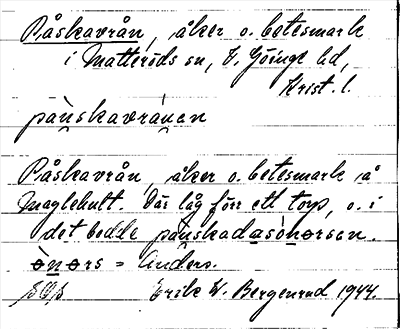 Påskavrån, åker o. betesmark
i Matteröds sn, V. Göinge hd,
Krist. l.
pånskavrånen
Påskavrån, åker o. betesmark å
Maglehult. Där låg förr ett torp, o. i
det bodde pånskadasönorsen.
ònors = Anders.
Erik W. Bergenrud 1944.